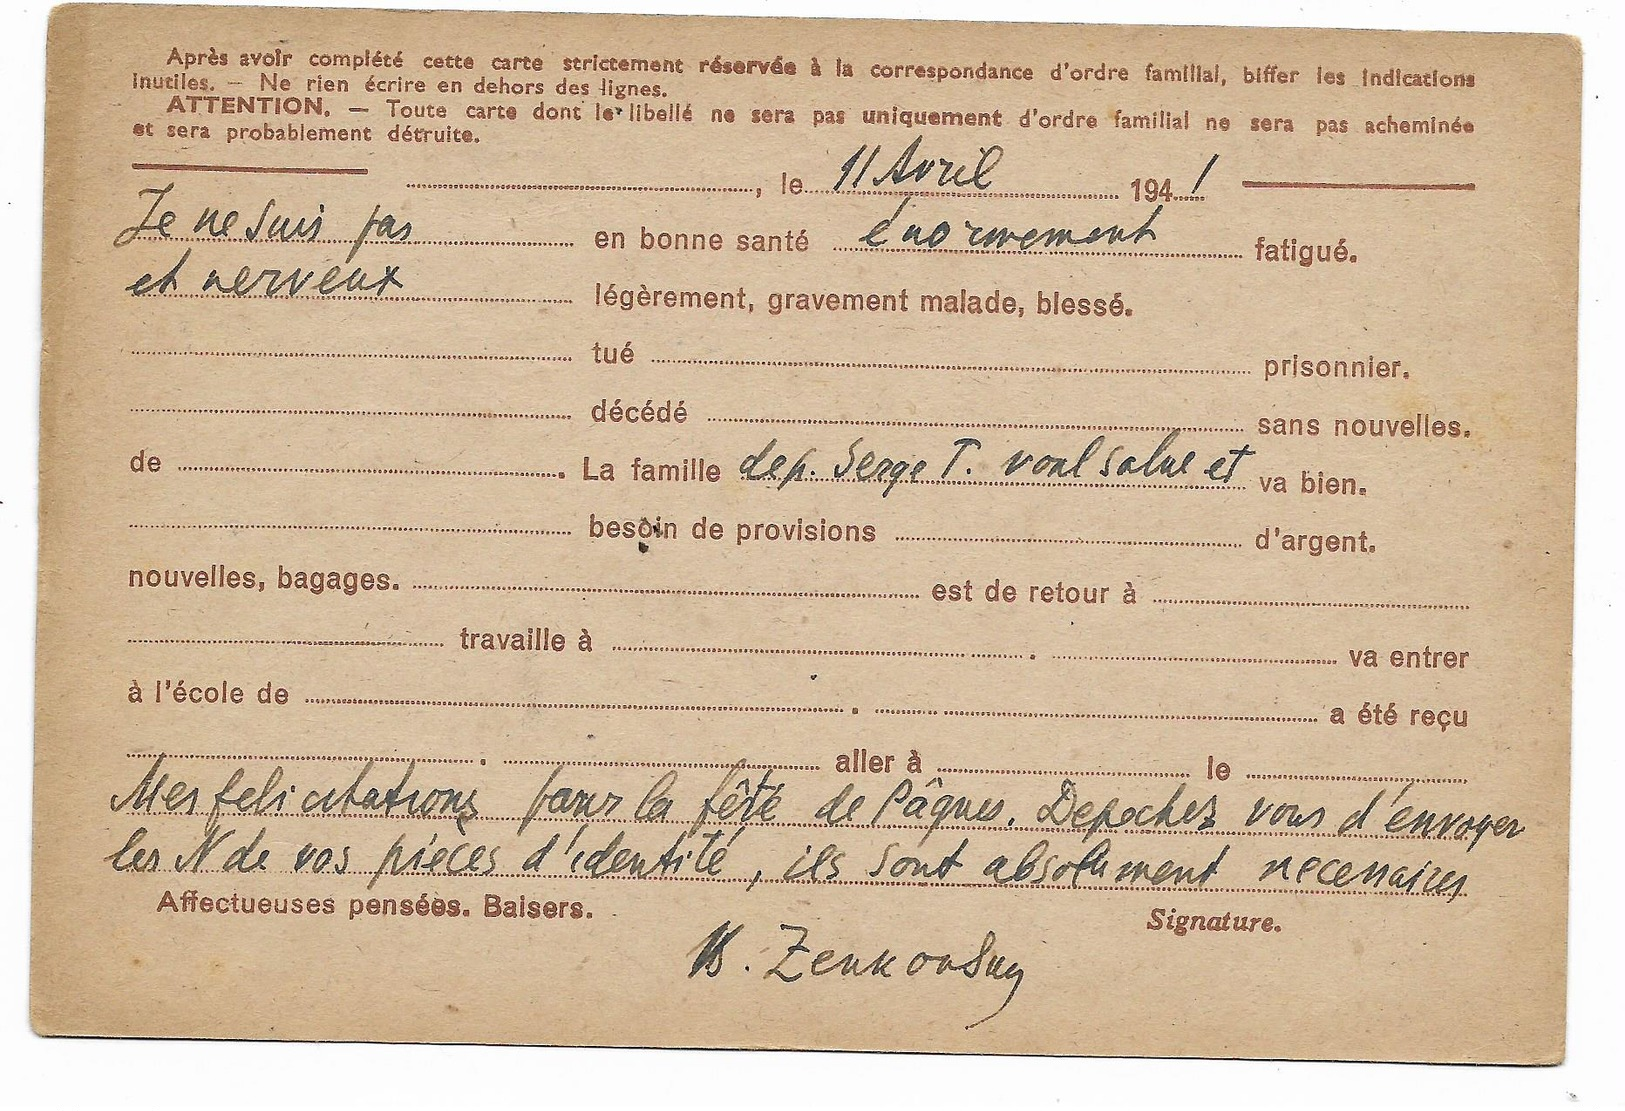 Après avoir complété cette carte strictement réservée à la correspondance d'ordre familial, biffer les indications
inutiles. — Ne rien écrire en dehors des lignes.
ATTENTION. — Toute carte dont le libellé ne sera pas uniquement d'ordre familial ne sera pas acheminée
et sera probablement détruite.
, le 11 Avril 1941
Je ne suis pas en bonne santé énormement fatigué.
et nerveux légèrement, gravement malade, blessé.
tué prisonnier.
décédé sans nouvelles.
de . La famille dep. Serge T. vont salue et va bien.
besoin de provisions d'argent.
nouvelles, bagages. est de retour à
travaille à . va entrer
à l'école de . a été reçu
. aller à le
Mes felicitations pour la fêté de Pâques. Depechez vous d'envoyer
les N de vos pièces d'identité, ils sont absolument necessaires
Affectueuses pensées. Baisers. Signature.
B. Zenkovsky